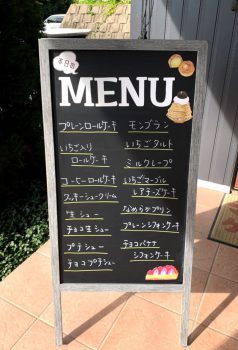 本日の
MENU
プレーンロールケーキ
いちご入り
ロールケーキ
コーヒーロールケーキ
クッキーシュークリーム
生シュー
チョコ生シュー
プチシュー
チョコプチシュー
モンブラン
いちごタルト
ミルクレープ
いちごマーブル
レアチーズケーキ
なめらかプリン
プレーンシフォンケーキ
チョコバナナ
シフォンケーキ